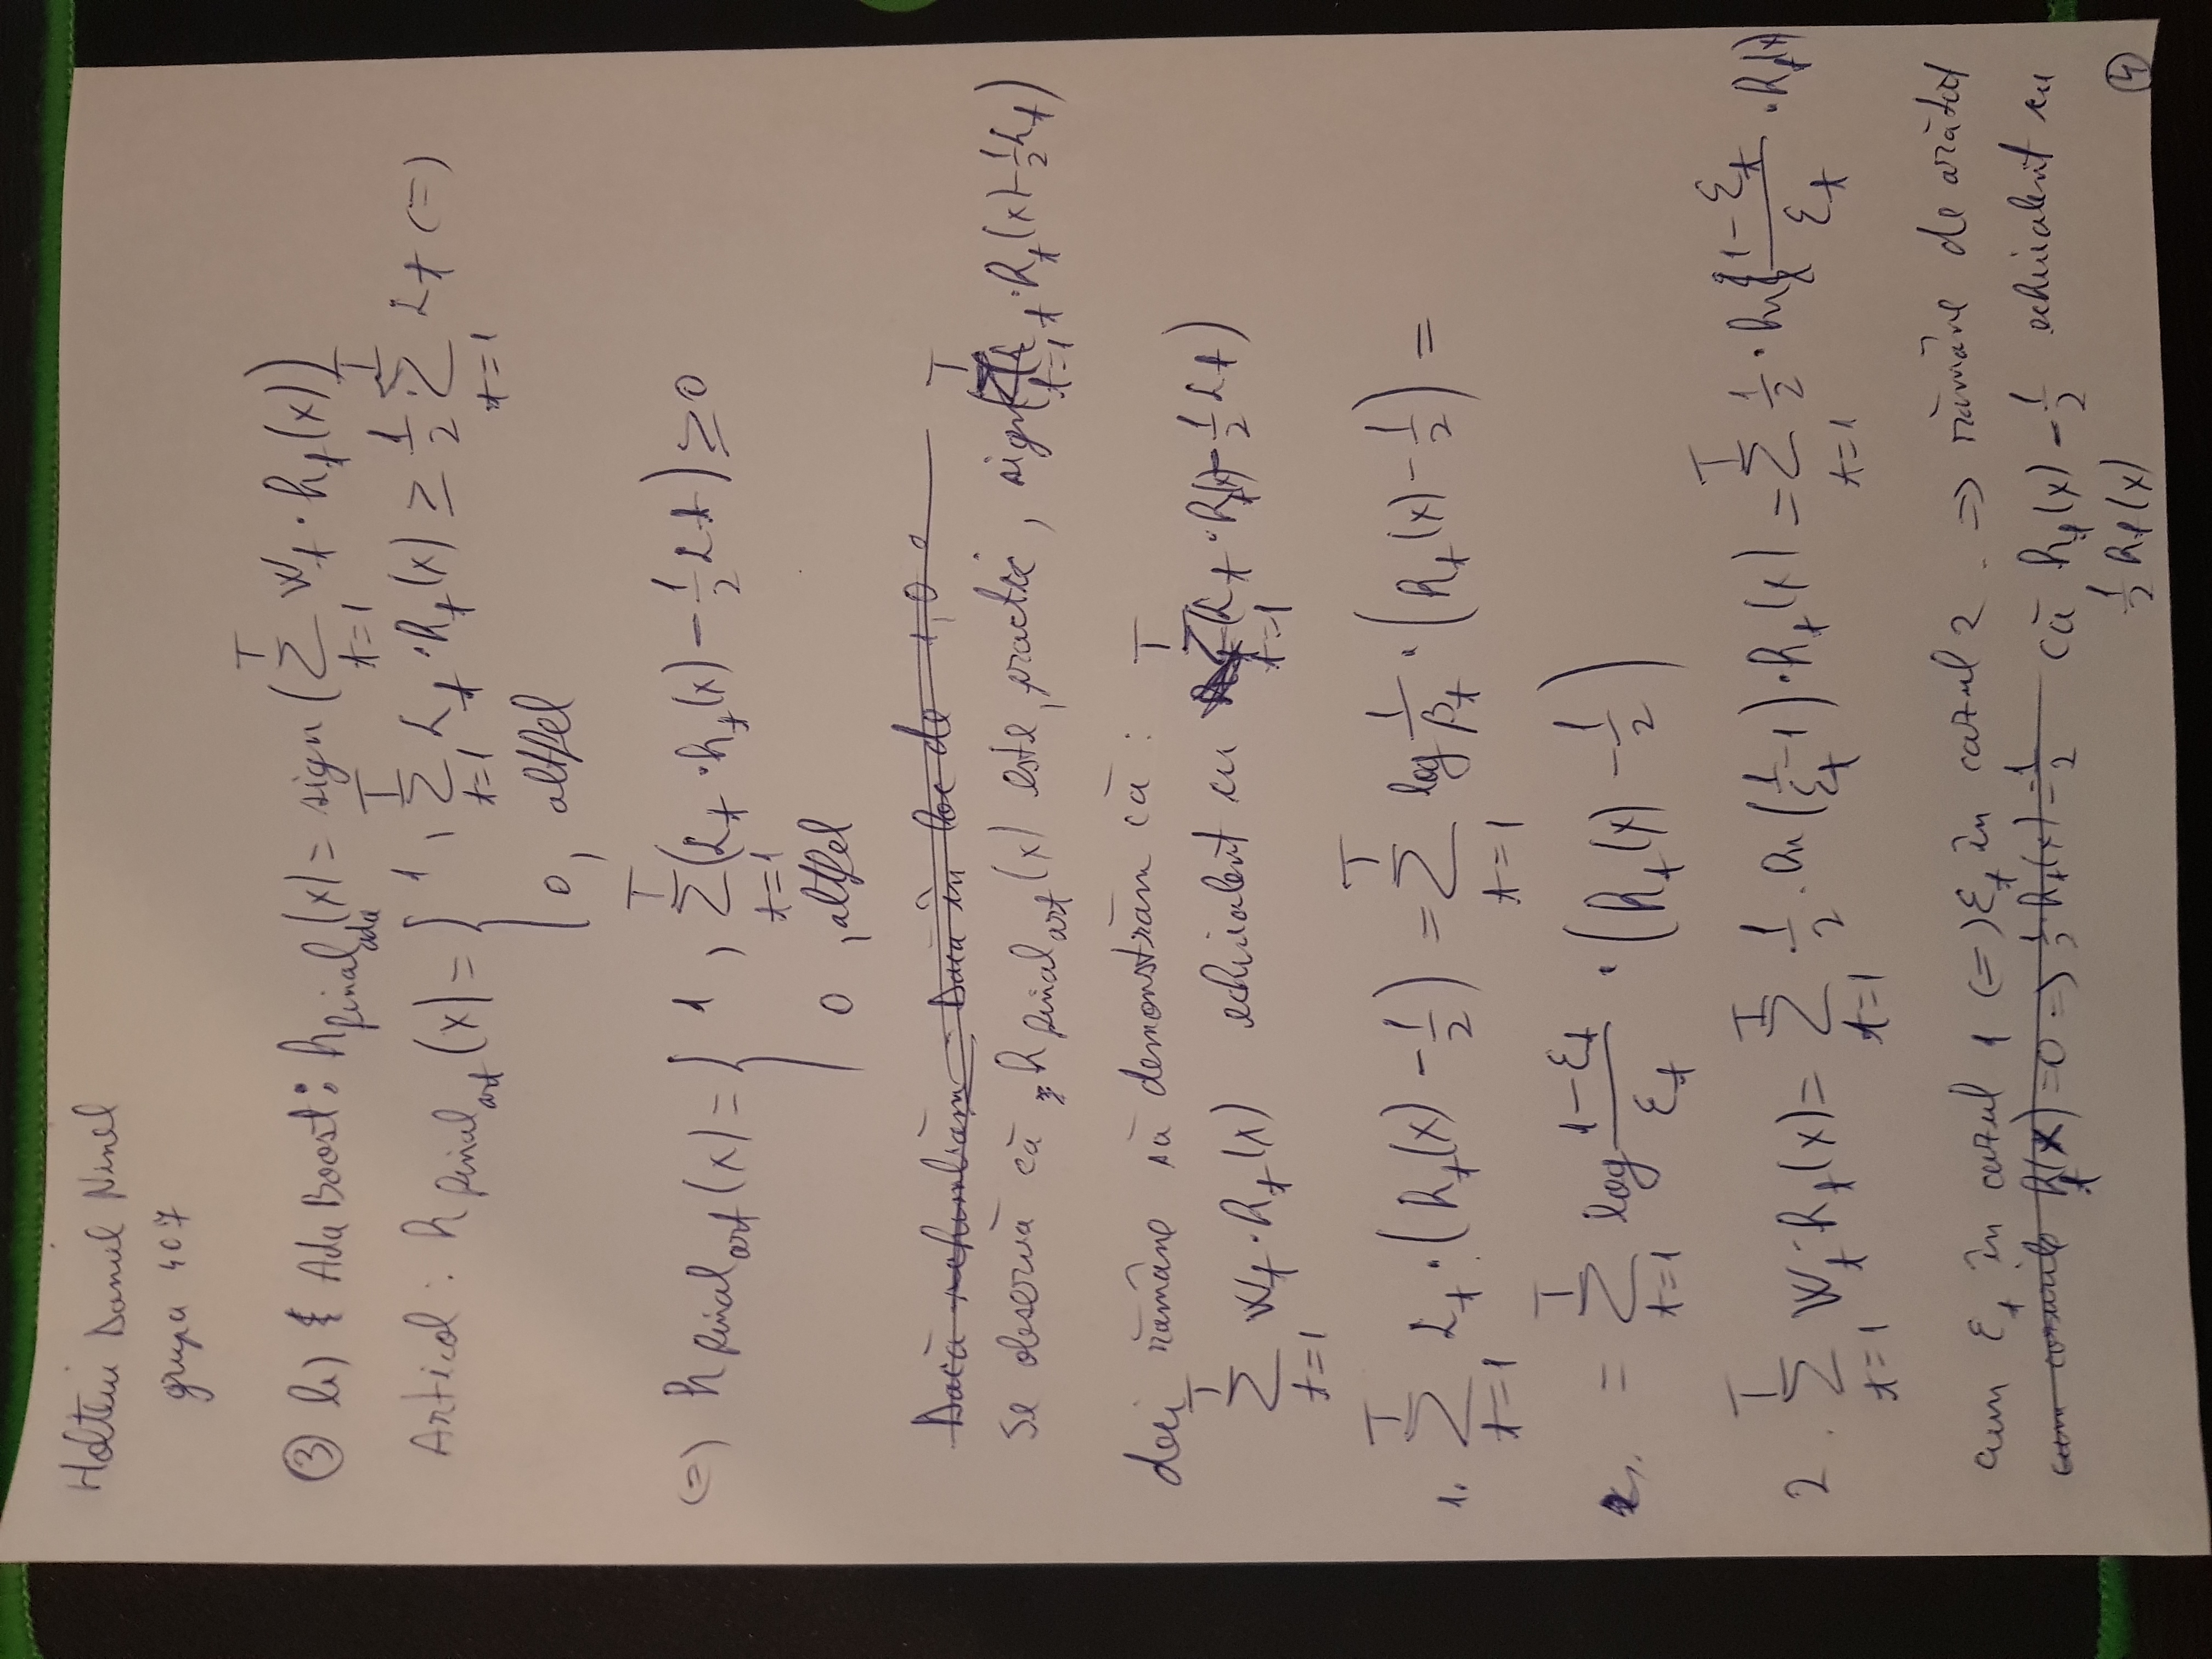 Daniel Ninel
grupa 407
③ b) AdaBoost: h_final_ada(x) = sign(∑_{t=1}^{T} w_t · h_t(x))
Articol: h_final_art(x) = { 1, ∑_{t=1}^{T} α_t · h_t(x) ≥ 1/2 ∑_{t=1}^{T} α_t (=)
0, altfel
(=) h_final_art(x) = { 1, ∑_{t=1}^{T} (α_t · h_t(x) - 1/2 α_t) ≥ 0
0, altfel
Dacă schimbăm Dacă în loc de 1, 0
Se observă că h_final_art(x) este, practic, sign(∑_{t=1}^{T} α_t · h_t(x) - 1/2 α_t)
deci rămâne să demonstrăm că:
∑_{t=1}^{T} w_t · h_t(x) echivalent cu ∑_{t=1}^{T} (α_t · h_t(x) - 1/2 α_t)
1. ∑_{t=1}^{T} α_t · (h_t(x) - 1/2) = ∑_{t=1}^{T} log 1/β_t · (h_t(x) - 1/2) =
= ∑_{t=1}^{T} log (1-ε_t)/ε_t · (h_t(x) - 1/2)
2. ∑_{t=1}^{T} w_t · h_t(x) = ∑_{t=1}^{T} 1/2 · ln(1/ε_t - 1) · h_t(x) = ∑_{t=1}^{T} 1/2 · ln (1-ε_t)/ε_t · h_t(x)
cum ε_t în cazul 1 (=) ε_t în cazul 2 . => rămâne de arătat
h_t(x) = 0 => 1/2 · h_t(x) = -1/2 că h_t(x) - 1/2 echivalent cu
1/2 h_t(x)
④